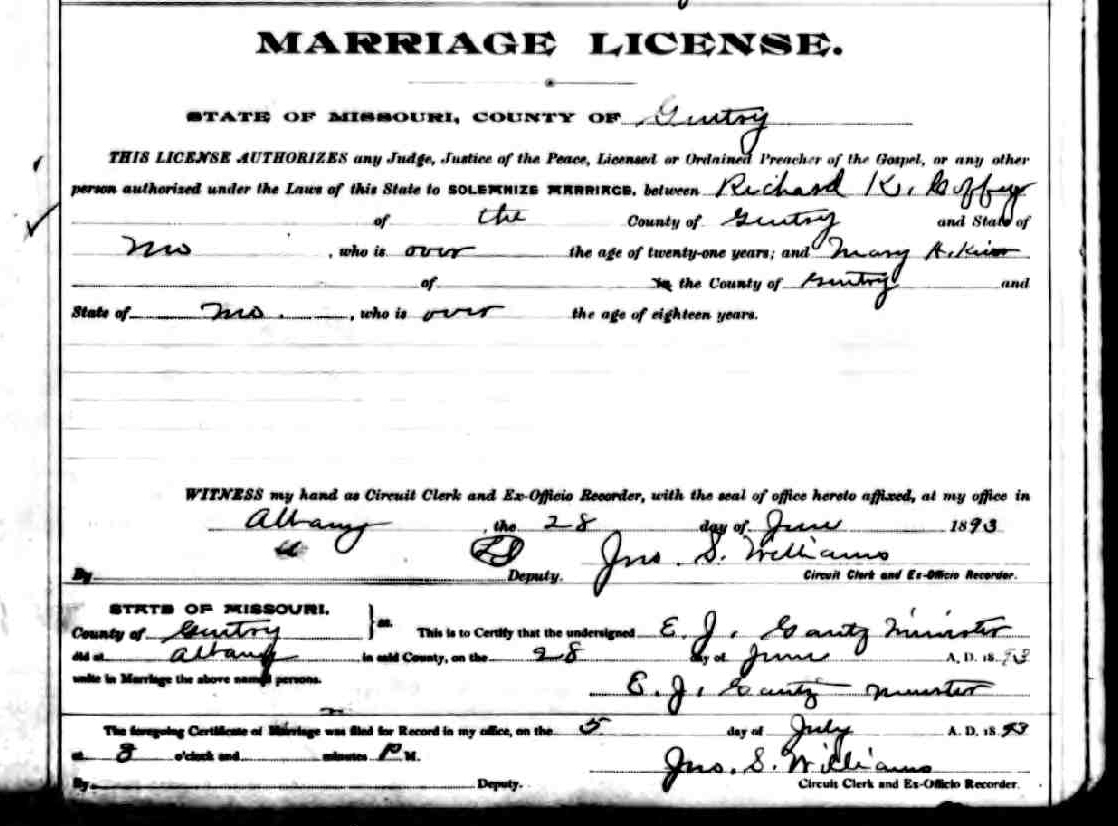 MARRIAGE LICENSE.
STATE OF MISSOURI, COUNTY OF Gentry
THIS LICENSE AUTHORIZES any Judge, Justice of the Peace, Licensed or Ordained Preacher of the Gospel, or any other
person authorized under the Laws of this State to SOLEMNIZE MARRIAGE, between Richard K. Coffey
of the County of Gentry and State of
Mo , who is over the age of twenty-one years; and Mary A.
of In the County of Gentry and
State of Mo. , who is over the age of eighteen years.
WITNESS my hand as Circuit Clerk and Ex-Officio Recorder, with the seal of office hereto affixed, at my office in
Albany , the 28 day of June 1893
Jno. S. Williams
By Deputy. Circuit Clerk and Ex-Officio Recorder.
STATE OF MISSOURI,
County of Gentry } ss. This is to Certify that the undersigned E. J. Gantz Minister
did at Albany in said County, on the 28 day of June A. D. 1893
unite in Marriage the above named persons.
E. J. Gantz Minister
The foregoing Certificate of Marriage was filed for Record in my office, on the 5 day of July A. D. 1893
at 3 o'clock and minutes P M.
Jno. S. Williams
By Deputy. Circuit Clerk and Ex-Officio Recorder.